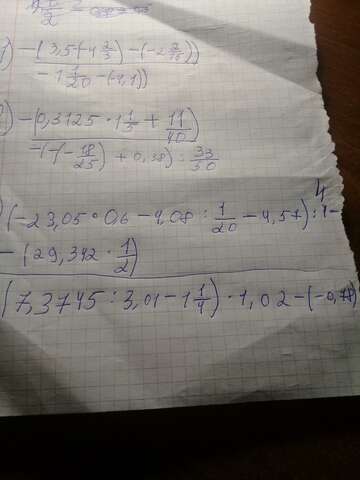 1) -(3,5-(-4 2/3) - (-2 2/15))
-1 1/20 - (-4,1)
-(0,3125 · 1 1/5 + 11/40)
-(-(-18/25) + 0,38) : 33/50
(-23,05 · 0,6 - 4,08 : 1/20 - 4,57) : 4
- (29,342 · 1/2)
(7,3745 : 3,01 - 1 1/4) · 1,02 - (-0,78)